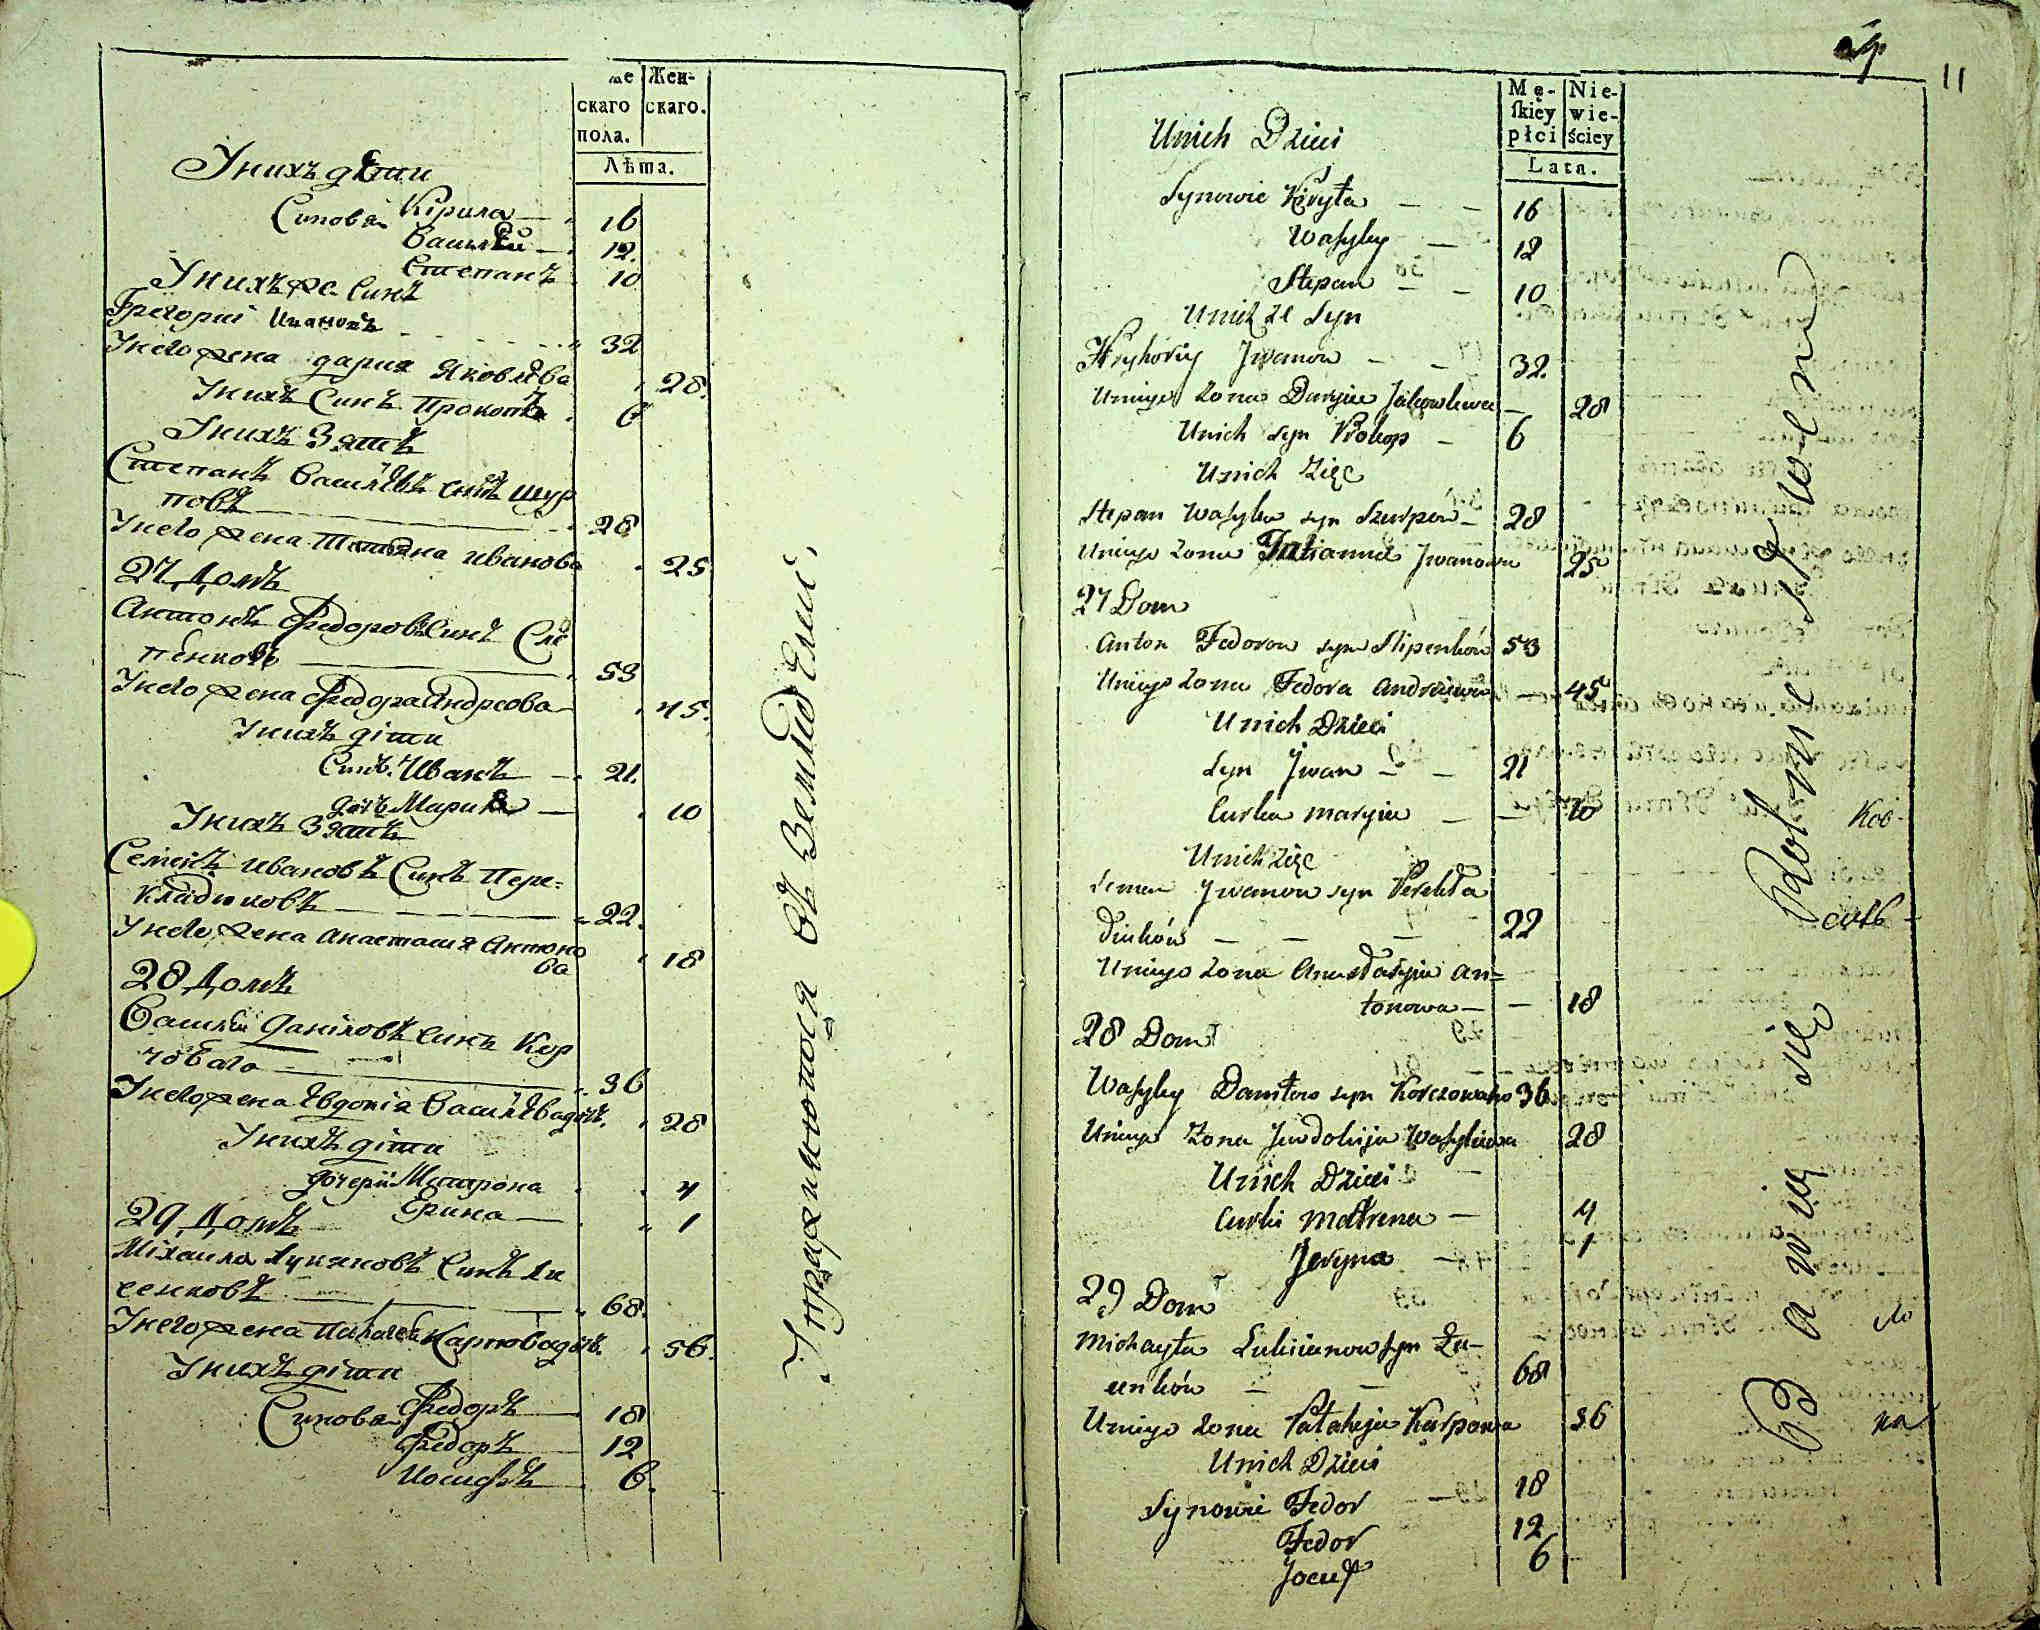 же
скаго
пола.
Жен-
скаго.
Лѣта.
У нихъ дѣти
Синовя Кірила 16
Василѣй 12
Степанъ 10
У нихъ же Синъ
Грегорий Ивановъ 32
У него жена дария Яковлѣва 28.
У нихъ Синъ Прокопъ 6
У нихъ Зять
Степанъ Васил҃ѣвъ синъ Шур
повъ 28
У него жена Татьяна иванова 25
27 Домъ
Антонъ Федоровъ Синъ Слѣ
пенковъ 53
У него жена Федора Андреова 45.
У нихъ діти
Синъ Иванъ 21.
дочъ Мария 10
У нихъ Зять
Семенъ ивановъ Синъ Пере-
кладюковъ 22.
У него жена анастасия антоно
ва 18
28 Домъ
Василѣй даніловъ синъ Кор
човаго 36
У него жена Евдокія Васил҃ѣва дочъ. 28
У нихъ діти
дочери Матрона 4
Ерина 1
29 Домъ
Міхаила Лукяновъ Синъ Ли
сенковъ 68.
У него жена Палагея Карпова дочъ. 56.
У нихъ діти
Синовя Федоръ 18
Федоръ 12
Иосифъ 6.
Упражняются въ Земледѣлии,
11
Mę-
ſkiey
płci
Nie-
wie-
ściey
Lata.
Unich Dzieci
Synowie Kiryła 16
Wasyley 12
Stepan 10
Unich że Syn
Hryhoriy Jwanow 32.
Uniego żona Daryia Jakowlewa 28
Unich syn Prokop 6
Unich Zięc
Stepan Wasylew syn Szurpow 28
Uniego żona Tatianna Jwanowa 25
27 Dom
Anton Fedorow syn Slipenków 53
Uniego żona Fedora Andreiewa 45
Unich Dzieci
Syn Jwan 21
Curka Maryia 10
Unich Zięc
Semen Jwanow syn Perekła
diuków 22
Uniego żona Anastasyia An=
tonowa 18
28 Dom
Wasyley Daniłow syn Korczowaho 36
Uniego Żona Jewdokija Wasylewa 28
Unich Dzieci
Curki Matrena 4
Jeryna 1
29 Dom
Michayła Lukianow syn Ły-
senków 68
Uniego żona Pałaheja Karpowa 56
Unich Dzieci
Synowie Fedor 18
Fedor 12
Jocuf 6
Bawią się Rolnie